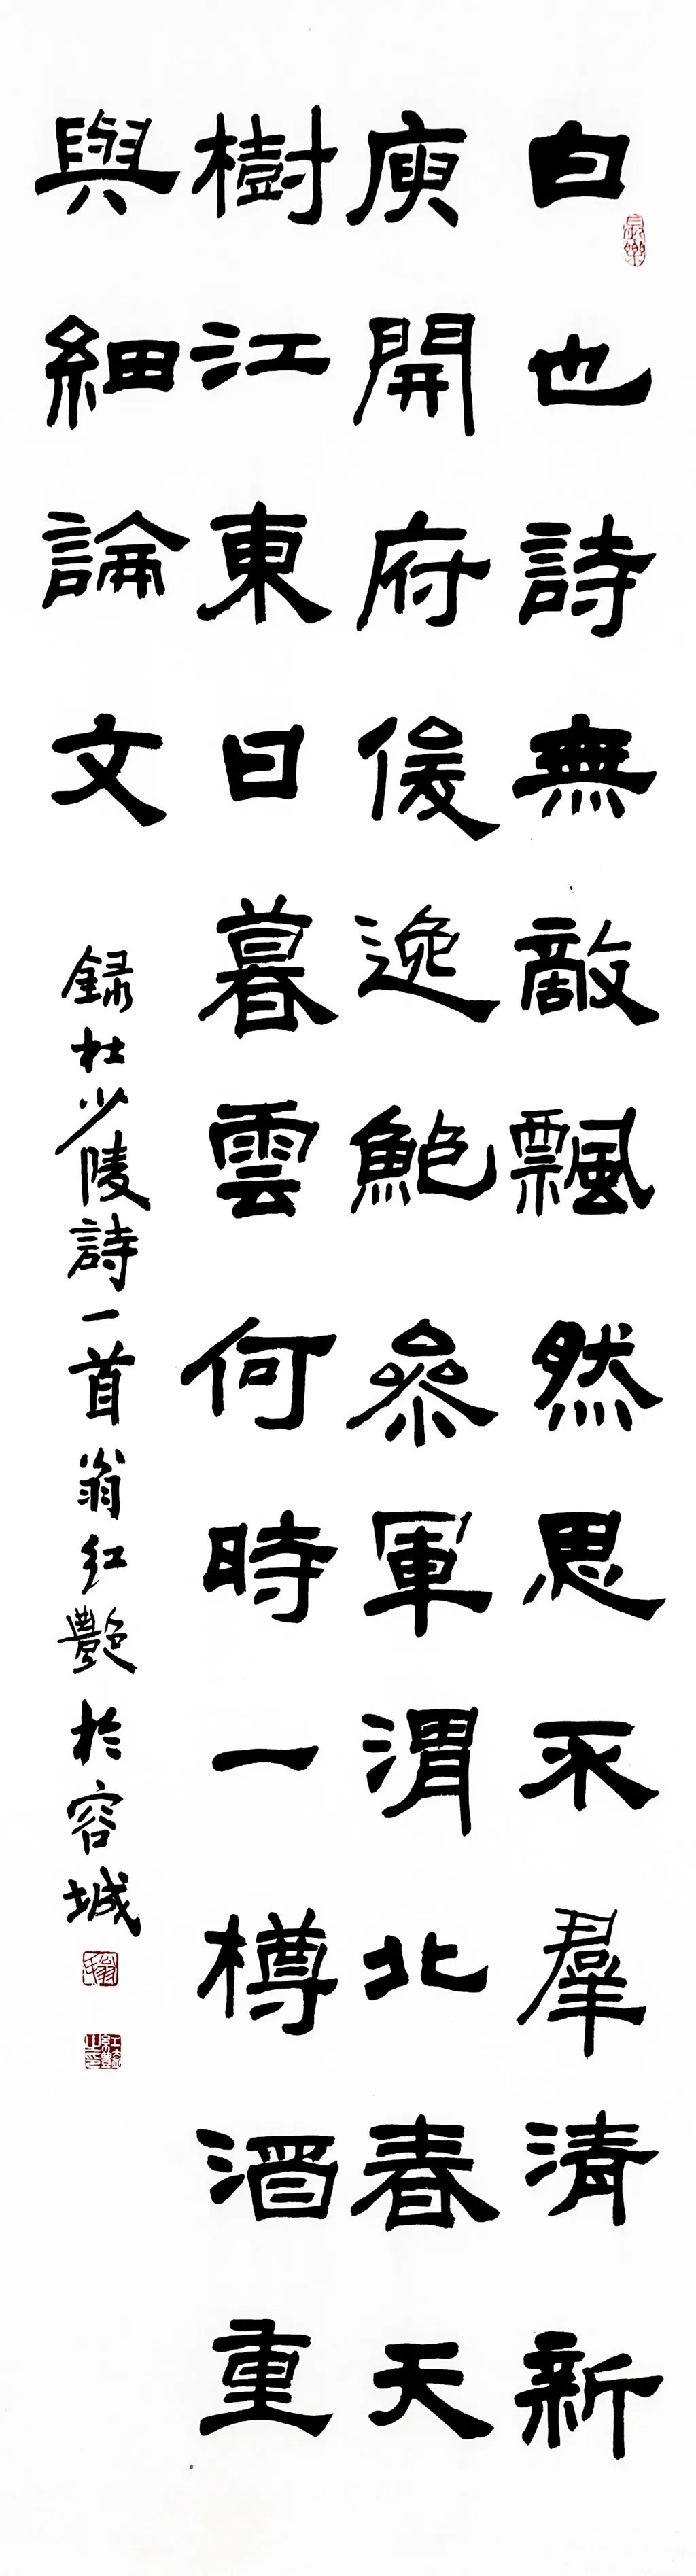 白也詩無敵飄然思不羣清新
庾開府俊逸鮑參軍渭北春天
樹江東日暮雲何時一樽酒重
與細論文
録杜少陵詩一首翁紅艷於容城